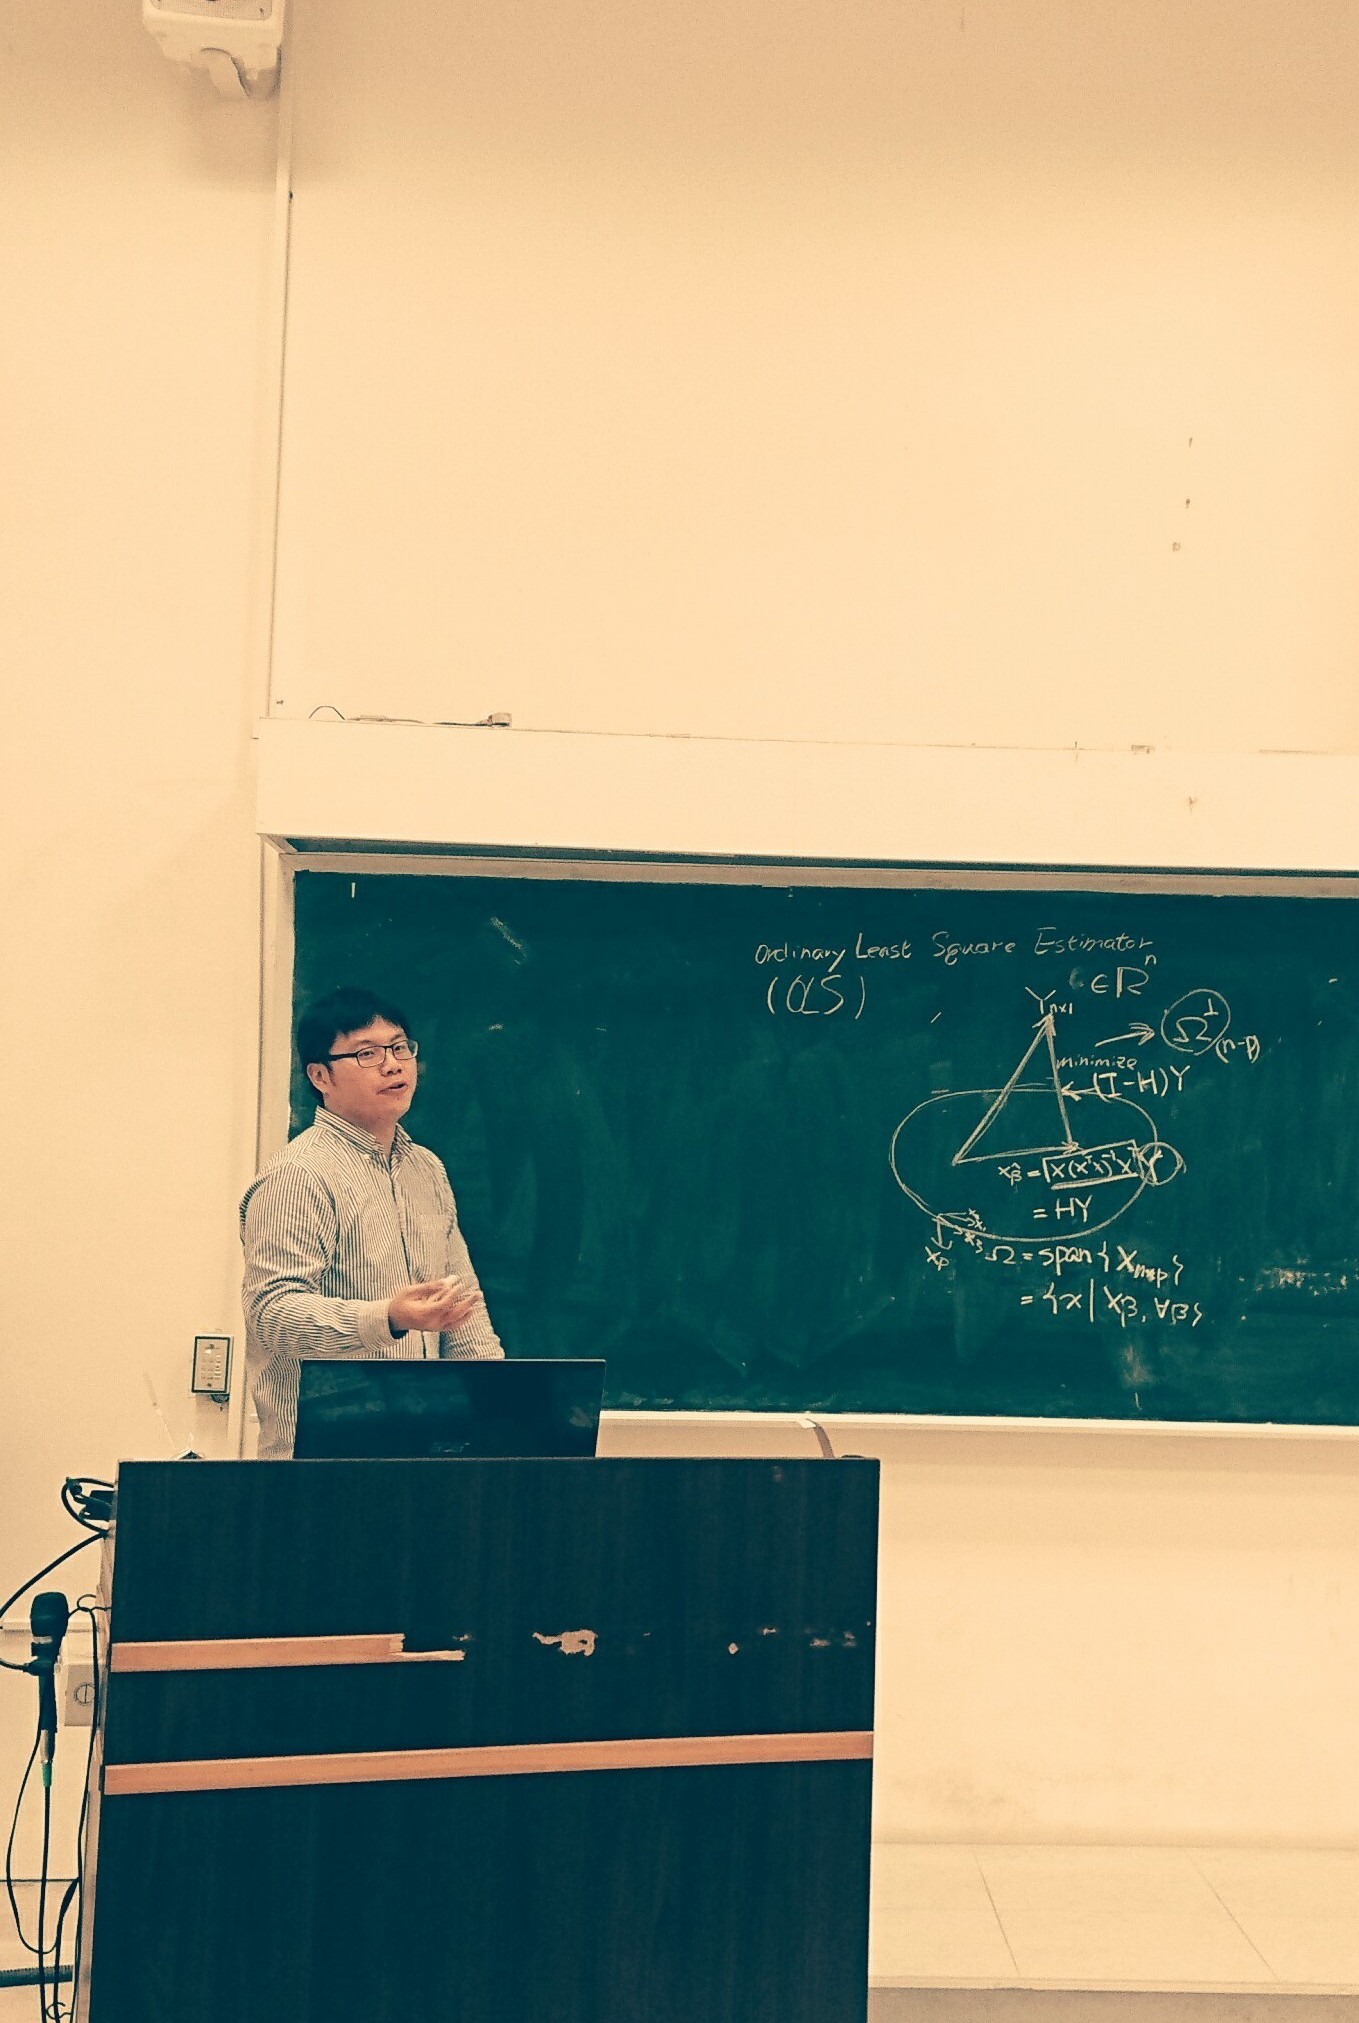 Ordinary Least Square Estimator
(OLS)
Yn×1 ∈ ℝⁿ
Ω⊥(n-p)
minimize
(I-H)Y
Xβ̂ = X(XᵀX)⁻¹Xᵀ Y
= HY
Xp
X3
Ω = span{Xn×p}
= {x | Xβ, ∀β}